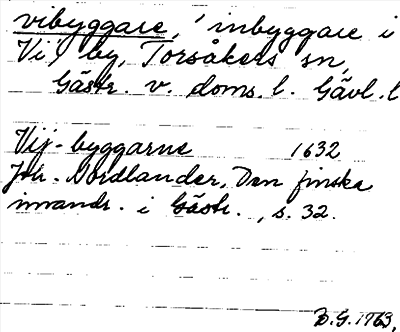 vibyggare, 'inbyggare i
Vi, by, Torsåkers sn,
Gästr. v. doms. l. Gävl. l
Vij-byggarne 1632
Joh. Nordlander, Den finska
invandr. i Gästr., s. 32.
B.G. 1963.